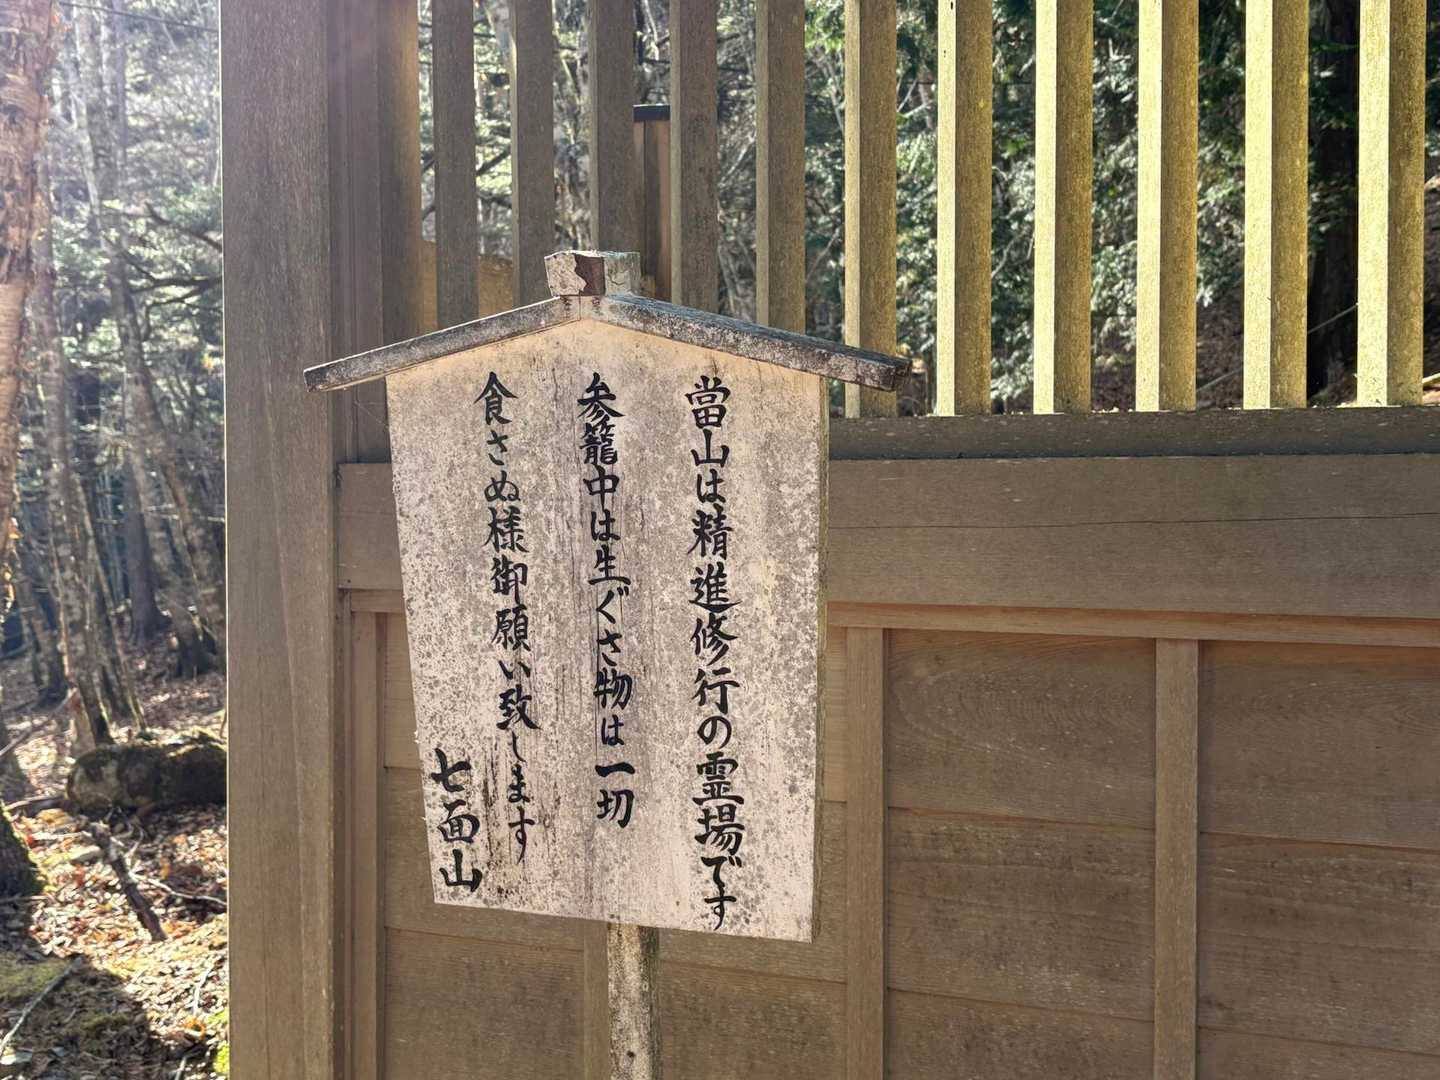 當山は精進修行の霊場です
参籠中は生ぐさ物は一切
食さぬ様御願い致します
七面山